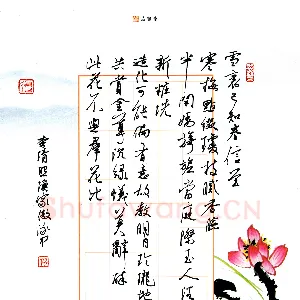 雪裏已知春信至
寒梅點綴瓊枝膩香臉
半開嬌旖旎當庭際玉人浴出
新妝洗
造化可能偏有意故教明月玲瓏地
共賞金尊沉綠蟻莫辭醉
此花不與群花比
李清照漁家傲